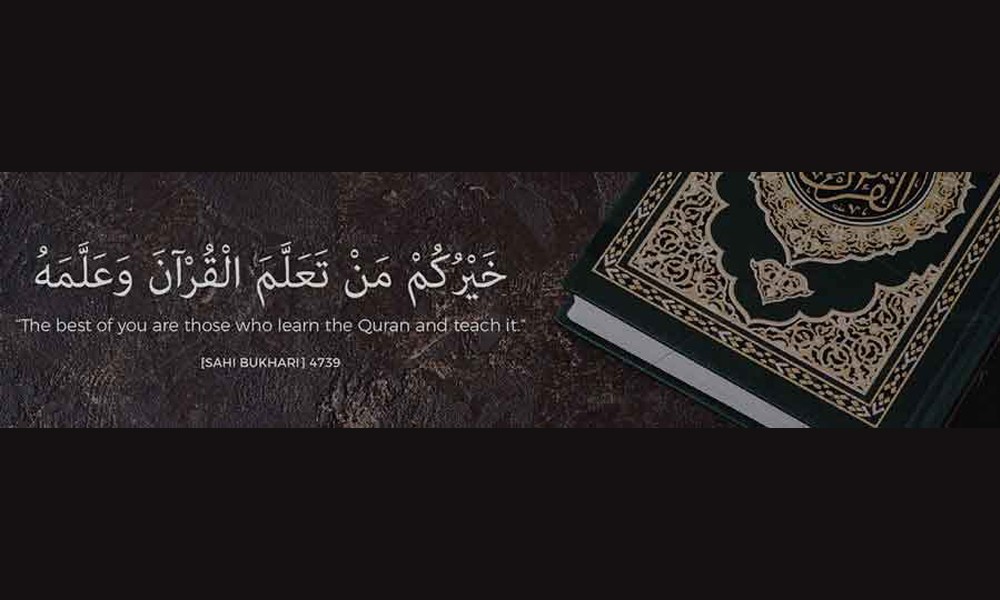 خَيْرُكُمْ مَنْ تَعَلَّمَ الْقُرْآنَ وَعَلَّمَهُ
"The best of you are those who learn the Quran and teach it."
[SAHI BUKHARI] 4739